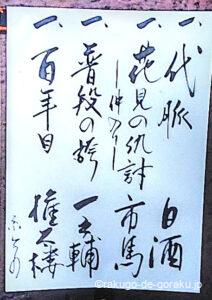 一、代脈 白酒
一、花見の仇討 市馬
―仲入り―
一、普段の袴 一之輔
一、百年目 権太楼
©rakugo-de-goraku.jp